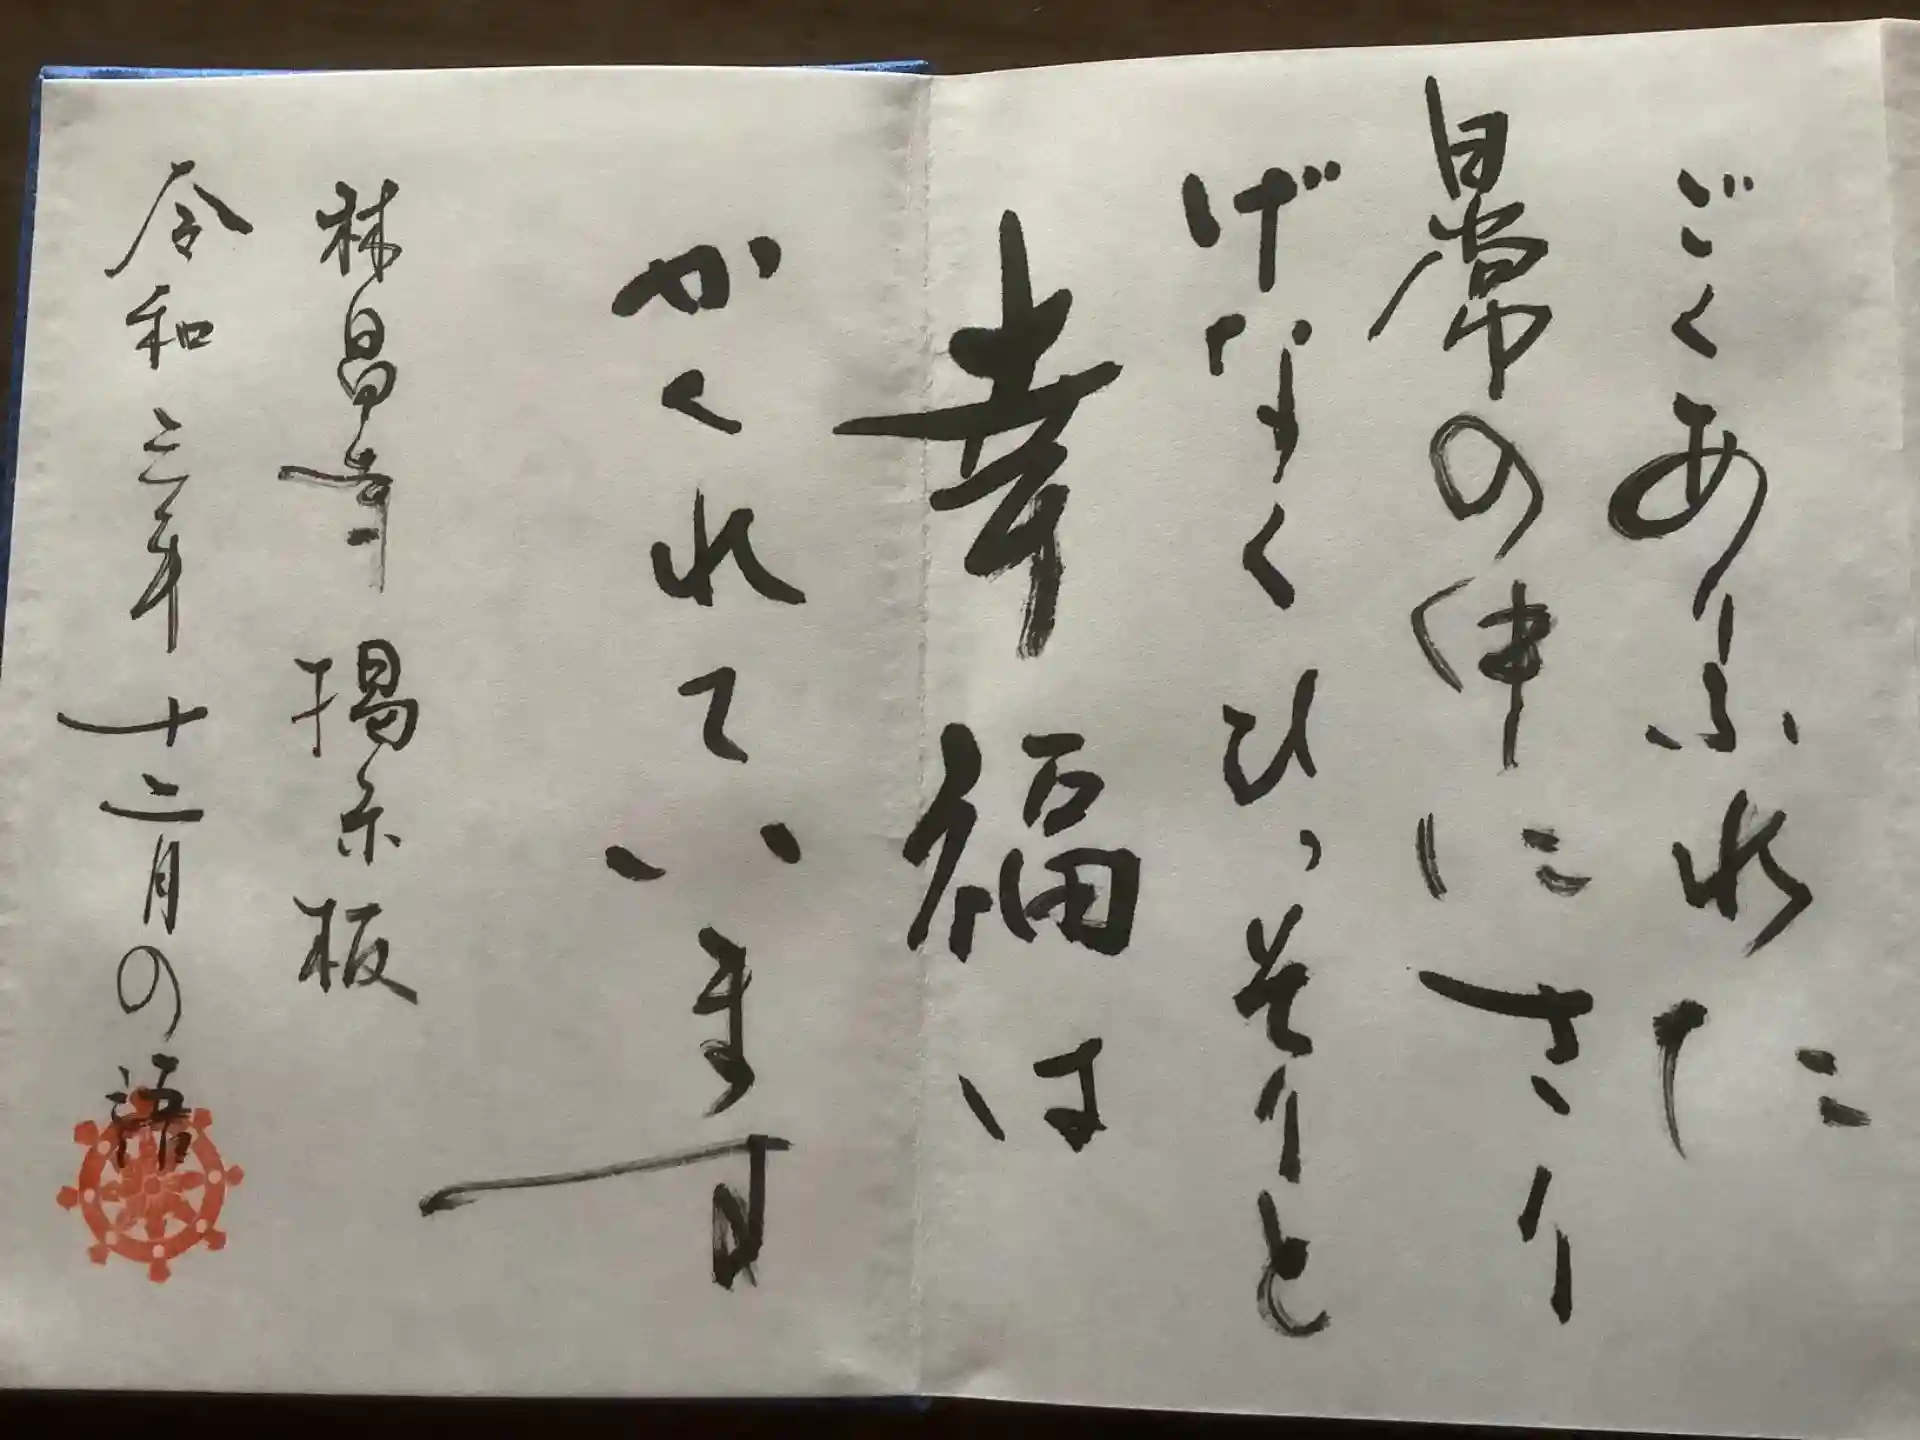 ごくありふれた
日常の中にさり
げなくひっそりと
幸福は
かくれています
林昌寺 掲示板
令和三年十二月の語